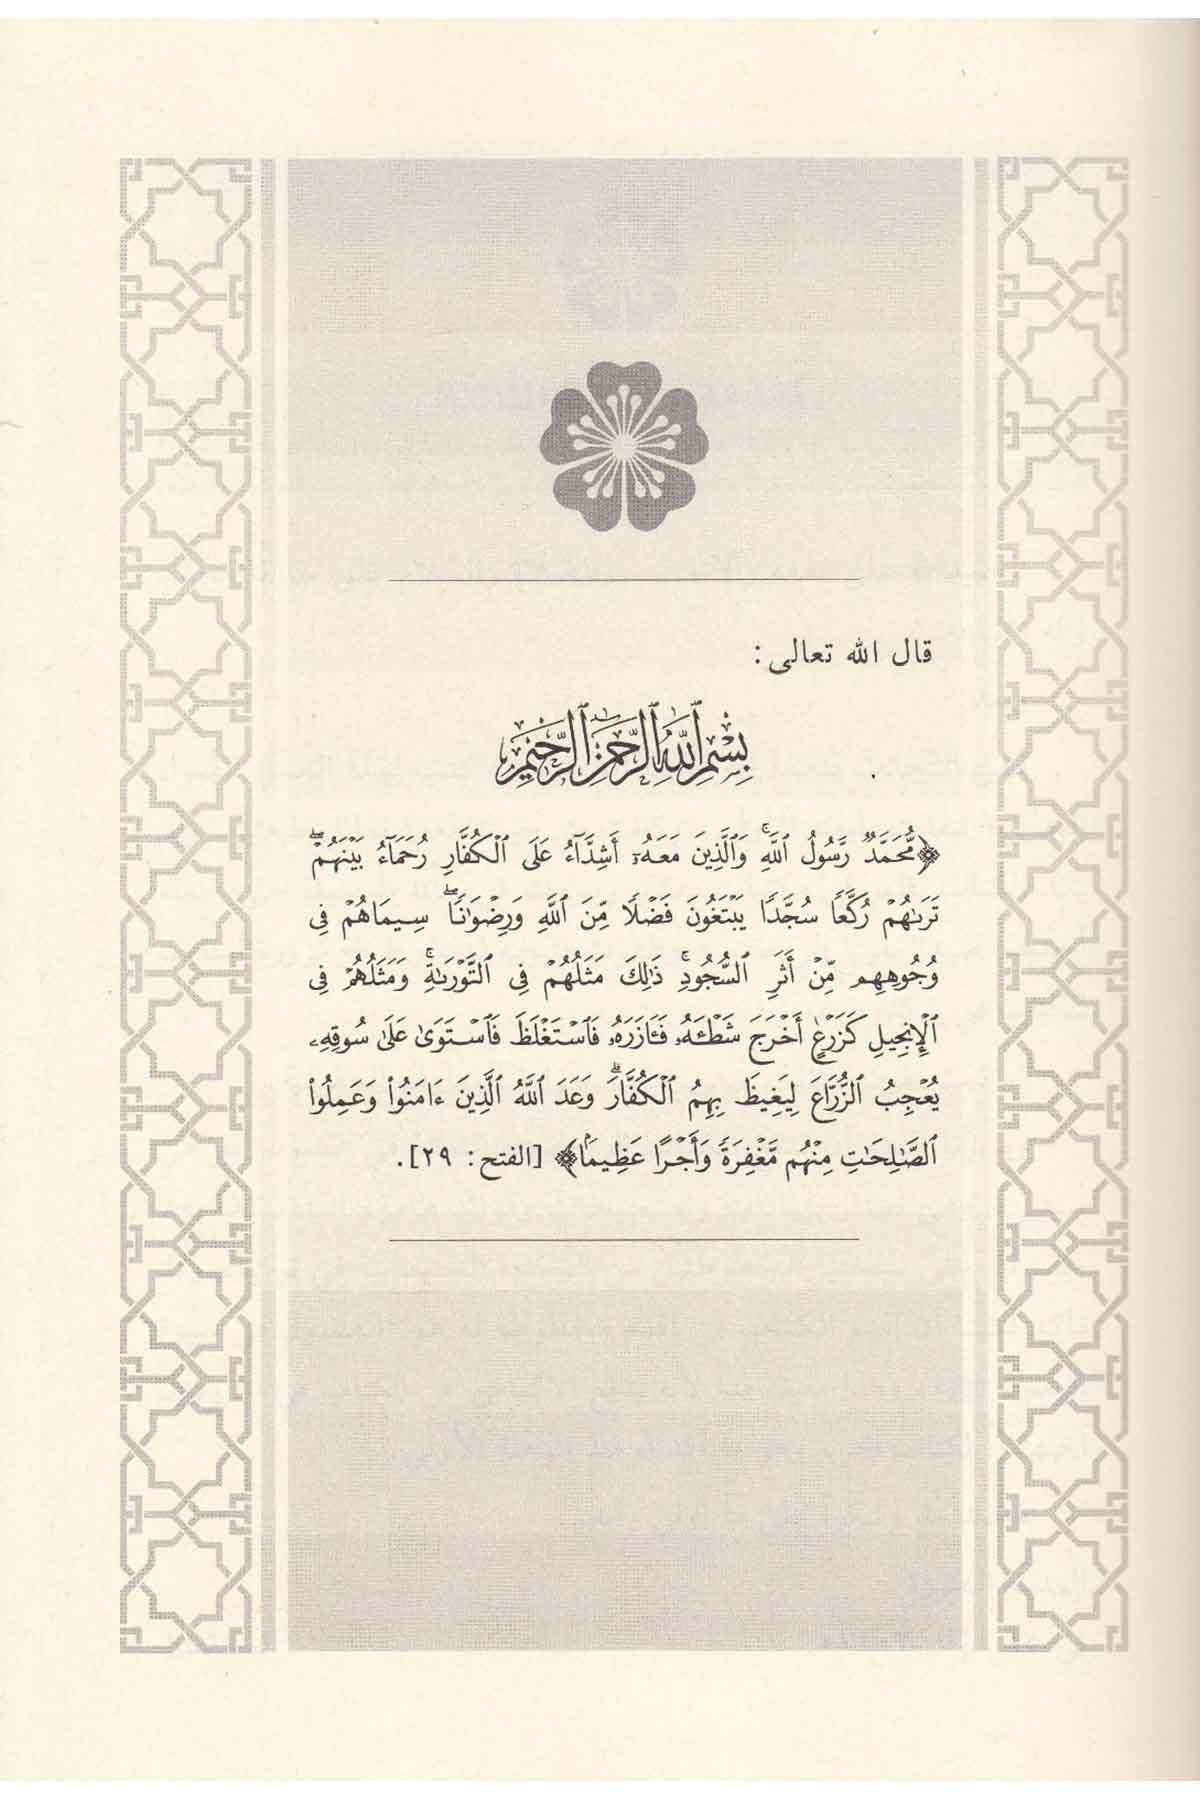 قال الله تعالى:
بِسْمِ ٱللَّهِ ٱلرَّحْمَٰنِ ٱلرَّحِيمِ
﴿مُّحَمَّدٌ رَّسُولُ ٱللَّهِۚ وَٱلَّذِينَ مَعَهُۥٓ أَشِدَّآءُ عَلَى ٱلْكُفَّارِ رُحَمَآءُ بَيْنَهُمْۖ
تَرَىٰهُمْ رُكَّعًا سُجَّدًا يَبْتَغُونَ فَضْلًا مِّنَ ٱللَّهِ وَرِضْوَٰنًاۖ سِيمَاهُمْ فِى
وُجُوهِهِم مِّنْ أَثَرِ ٱلسُّجُودِۚ ذَٰلِكَ مَثَلُهُمْ فِى ٱلتَّوْرَىٰةِۚ وَمَثَلُهُمْ فِى
ٱلْإِنجِيلِ كَزَرْعٍ أَخْرَجَ شَطْـَٔهُۥ فَـَٔازَرَهُۥ فَٱسْتَغْلَظَ فَٱسْتَوَىٰ عَلَىٰ سُوقِهِۦ
يُعْجِبُ ٱلزُّرَّاعَ لِيَغِيظَ بِهِمُ ٱلْكُفَّارَۗ وَعَدَ ٱللَّهُ ٱلَّذِينَ ءَامَنُوا۟ وَعَمِلُوا۟
ٱلصَّٰلِحَٰتِ مِنْهُم مَّغْفِرَةً وَأَجْرًا عَظِيمًۢا﴾ [الفتح: ٢٩].